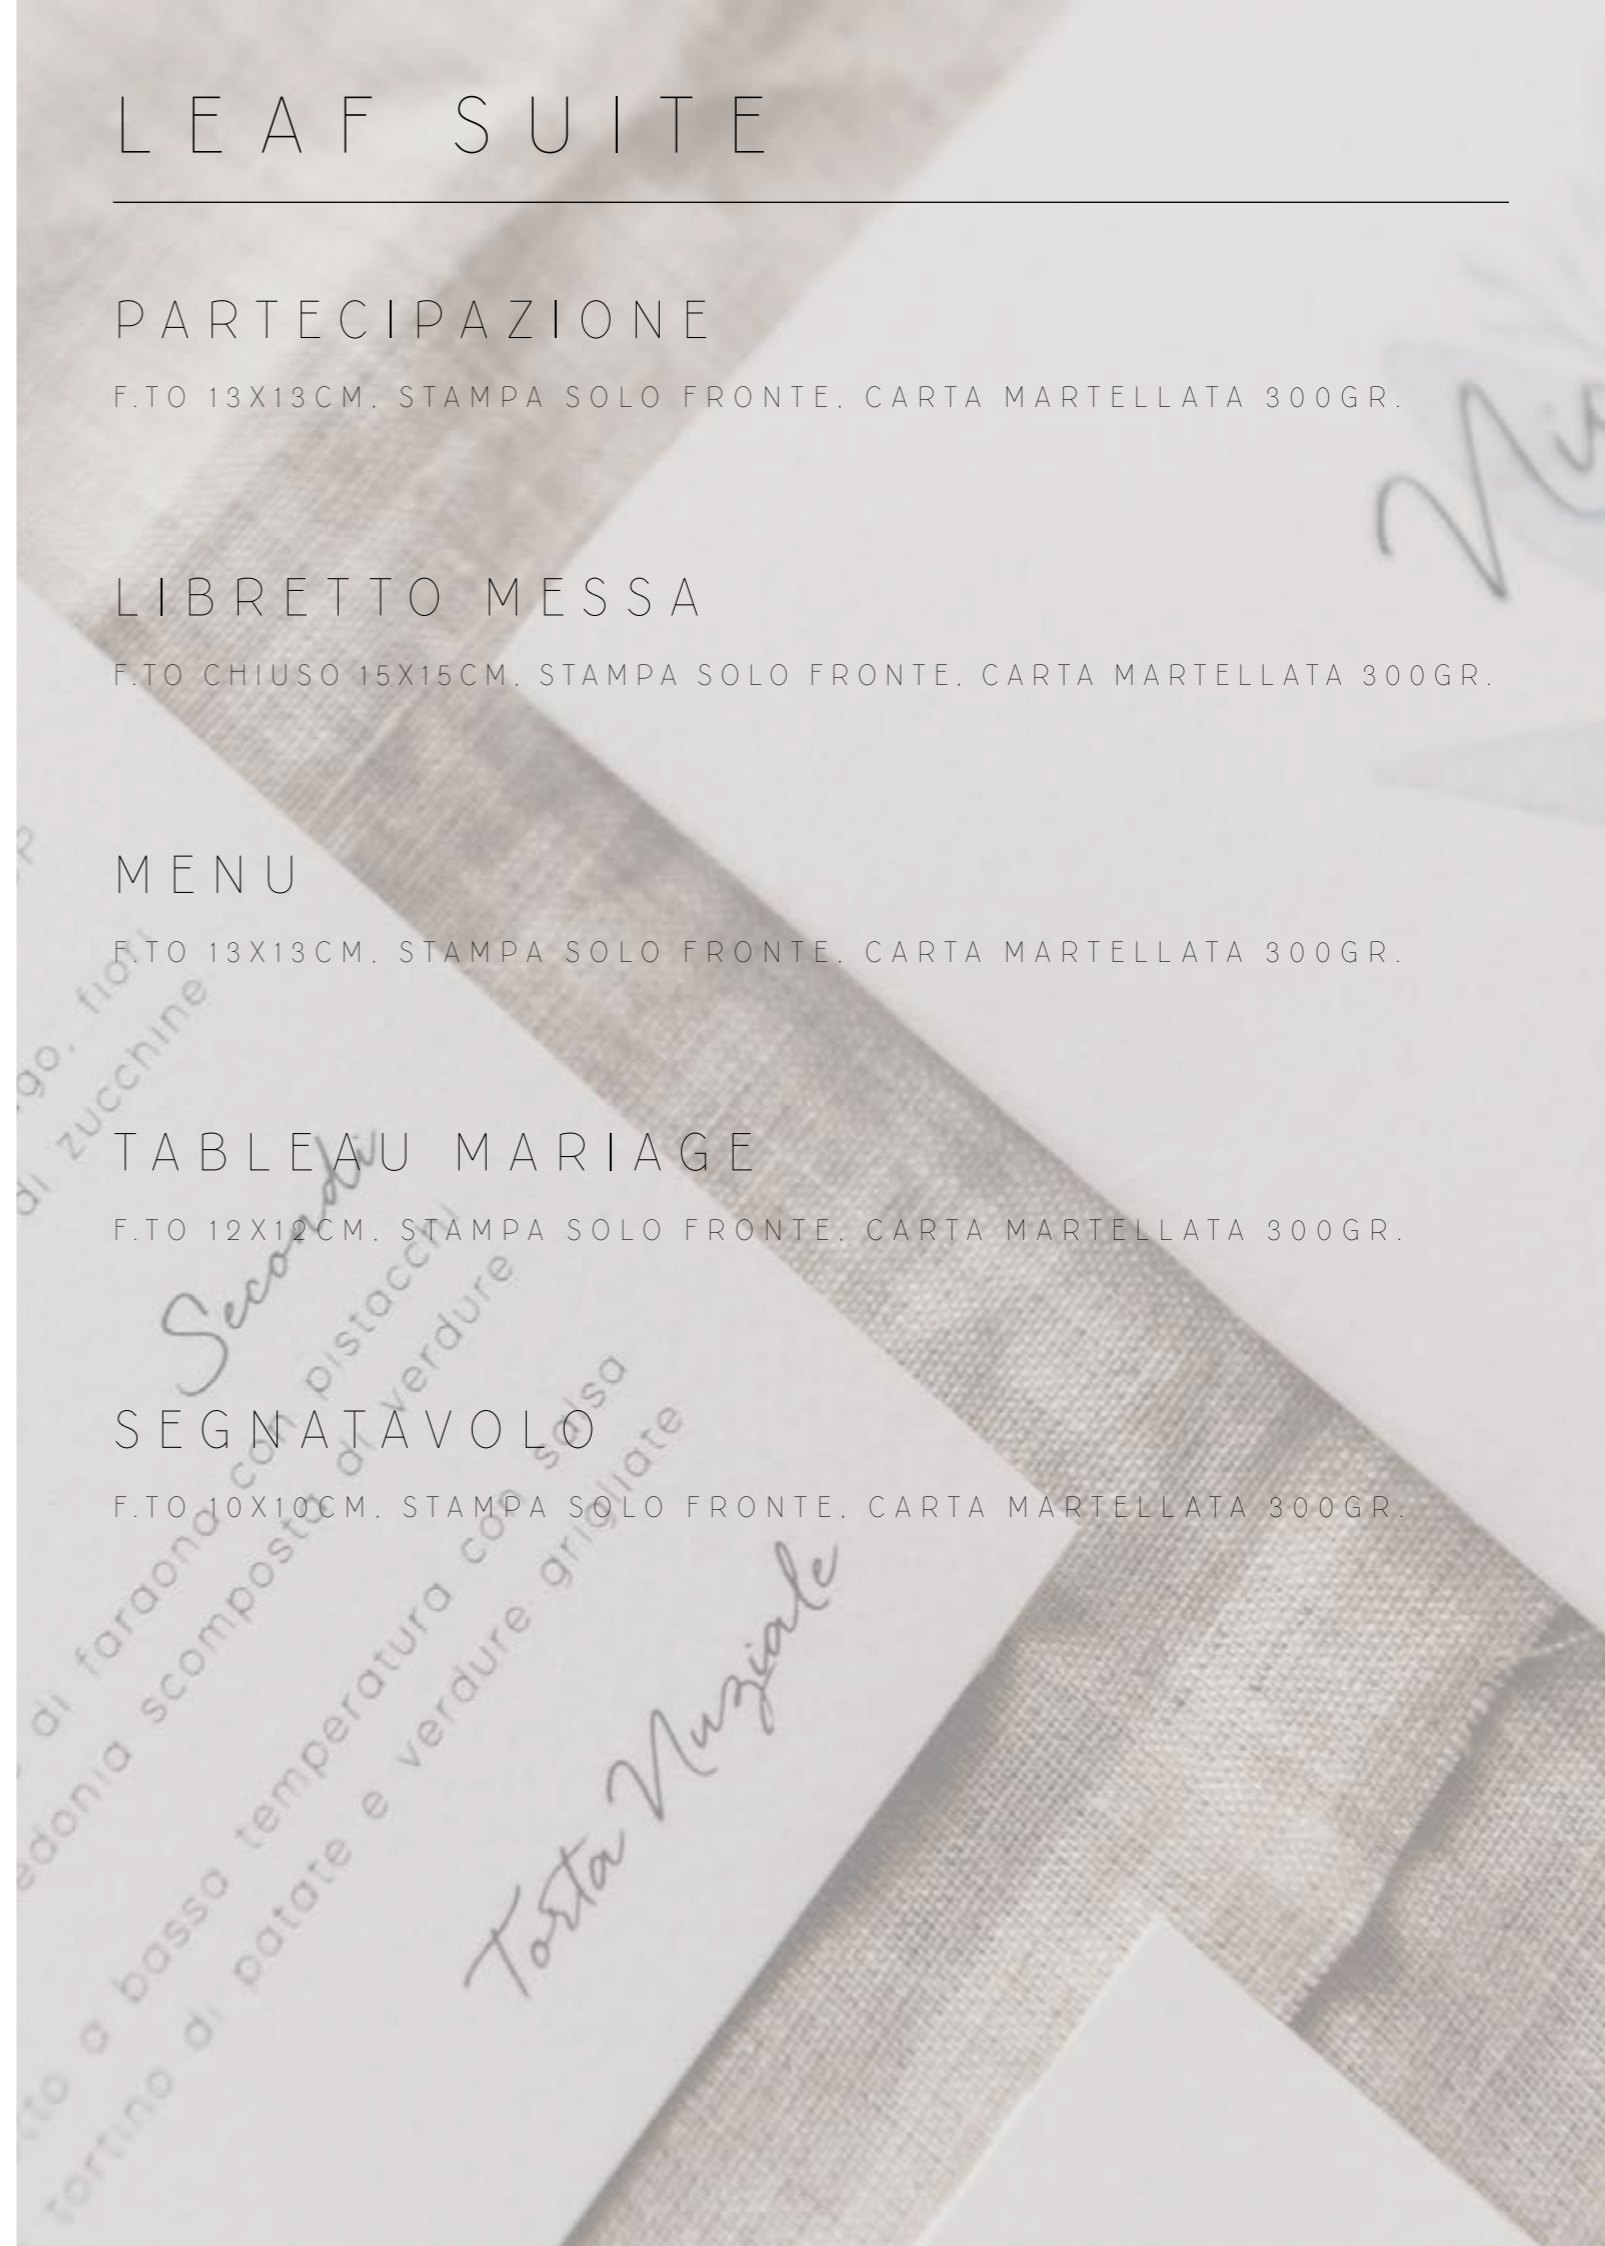 LEAF SUITE
PARTECIPAZIONE
F.TO 13X13CM, STAMPA SOLO FRONTE, CARTA MARTELLATA 300GR.
LIBRETTO MESSA
F.TO CHIUSO 15X15CM, STAMPA SOLO FRONTE, CARTA MARTELLATA 300GR.
MENU
F.TO 13X13CM, STAMPA SOLO FRONTE, CARTA MARTELLATA 300GR.
TABLEAU MARIAGE
F.TO 12X12CM, STAMPA SOLO FRONTE, CARTA MARTELLATA 300GR.
SEGNATAVOLO
F.TO 10X10CM, STAMPA SOLO FRONTE, CARTA MARTELLATA 300GR.
fiori
di zucchine
Secondi
di faraona con pistacchi
scomposta di verdure
a bassa temperatura con salsa
tortino di patate e verdure grigliate
Torta Nuziale